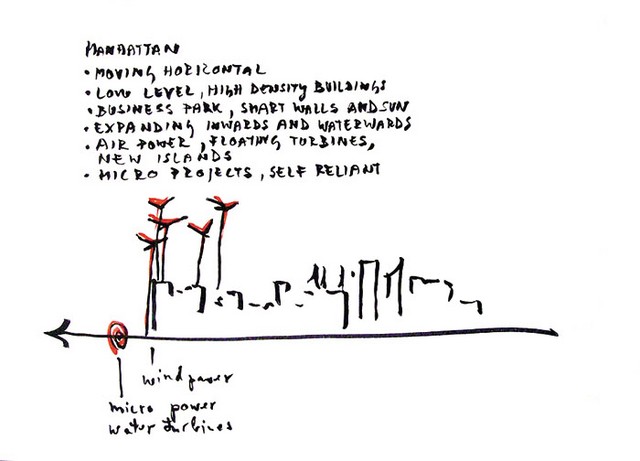 MANHATTAN
• MOVING HORIZONTAL
• LOW LEVEL, HIGH DENSITY BUILDINGS
• BUSINESS PARK, SMART WALLS AND SUN
• EXPANDING INWARDS AND WATERWARDS
• AIR POWER, FLOATING TURBINES,
NEW ISLANDS
• MICRO PROJECTS, SELF RELIANT
wind power
micro power
water turbines